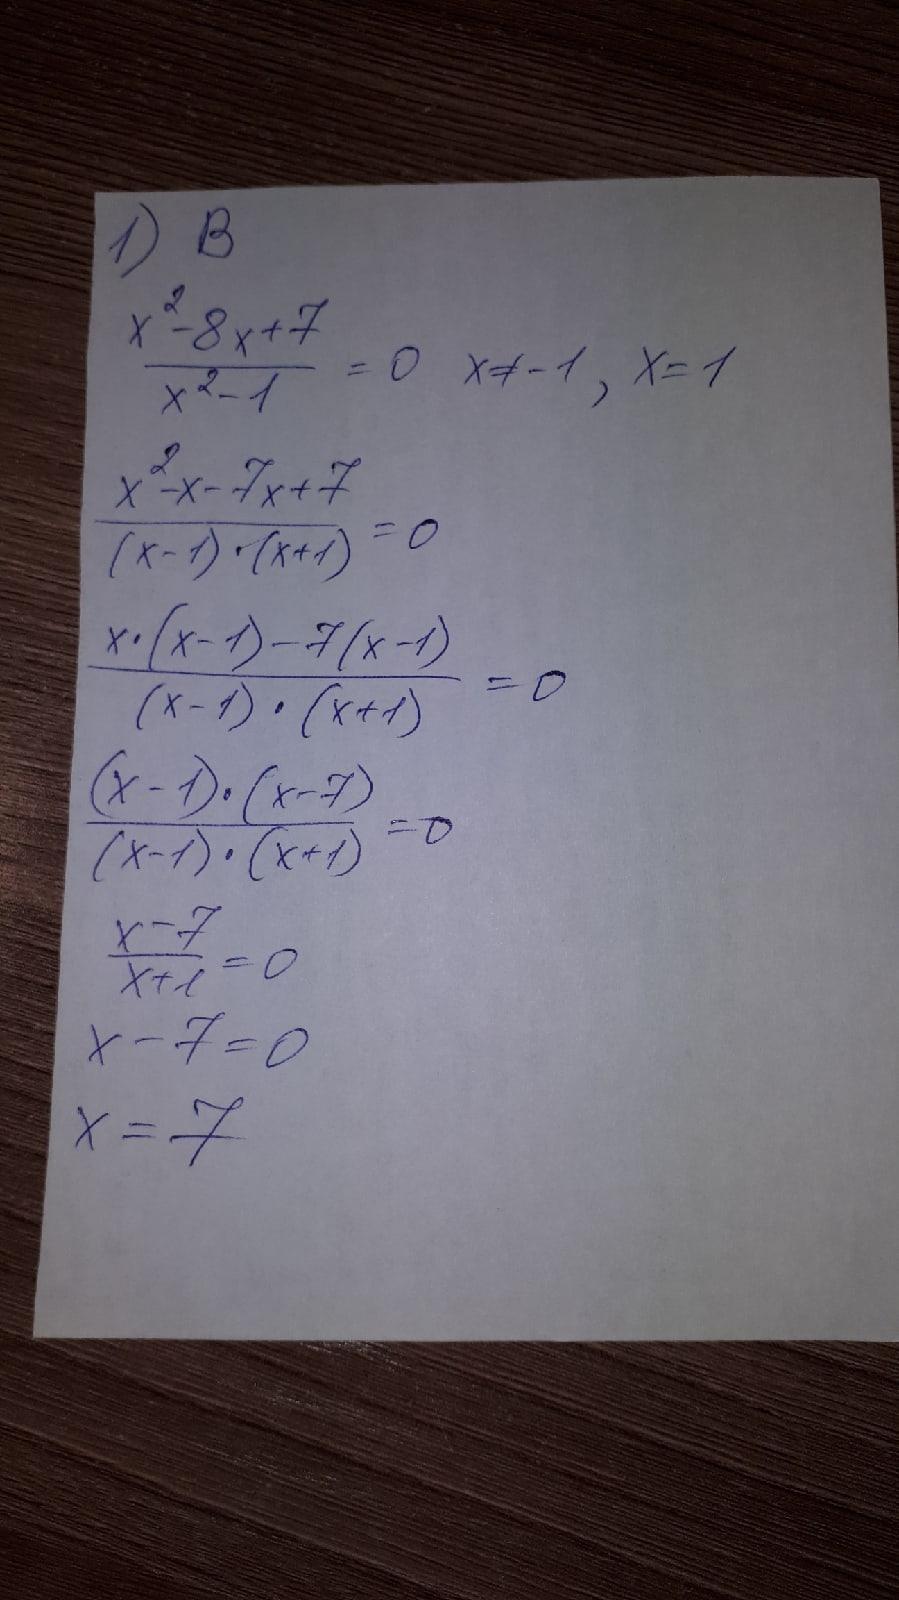 1) В
x²-8x+7/x²-1 = 0 x≠-1, x=1
x²-x-7x+7/(x-1)·(x+1) = 0
x·(x-1)-7(x-1)/(x-1)·(x+1) = 0
(x-1)·(x-7)/(x-1)·(x+1) = 0
x-7/x+1 = 0
x-7=0
x=7